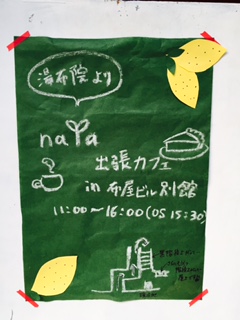 湯布院より
naYa
出張カフェ
in 布屋ビル別館
11:00〜16:00(OS 15:30)